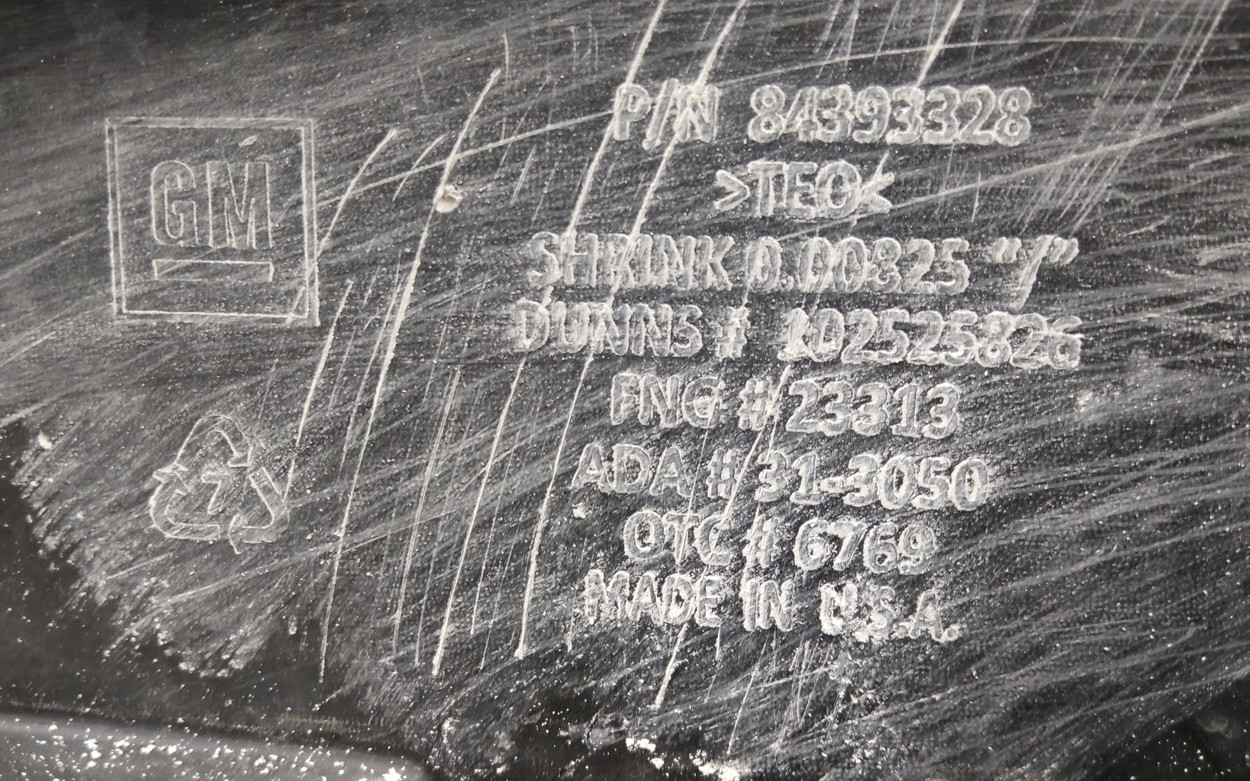 GM
P/N 84393328
>TEO<
SHRINK 0.00825 "/"
DUNNS # 102525826
FNG # 23313
ADA # 31-3050
OTC # 6769
MADE IN U.S.A.
7